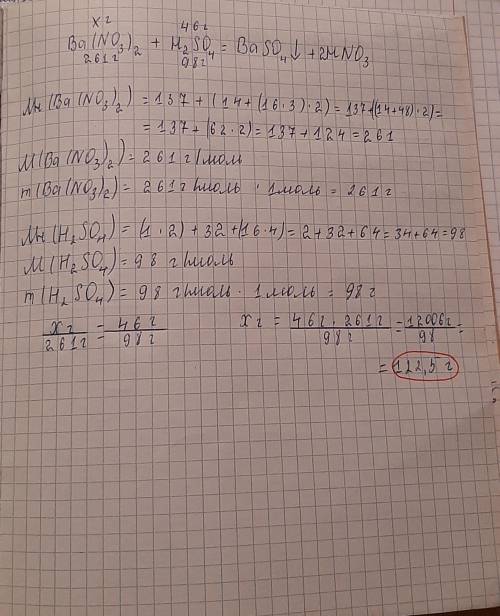 x г 46 г
Ba(NO₃)₂ + H₂SO₄ = BaSO₄↓ + 2HNO₃
261 г 98 г
Mr(Ba(NO₃)₂) = 137 + (14 + (16·3)·2) = 137 + ((14+48)·2) =
= 137 + (62·2) = 137 + 124 = 261
M(Ba(NO₃)₂) = 261 г/моль
m(Ba(NO₃)₂) = 261 г/моль · 1 моль = 261 г
Mr(H₂SO₄) = (1·2) + 32 + (16·4) = 2 + 32 + 64 = 34 + 64 = 98
M(H₂SO₄) = 98 г/моль
m(H₂SO₄) = 98 г/моль · 1 моль = 98 г
x г / 261 г = 46 г / 98 г x г = 46 г · 261 г / 98 г = 12006 г / 98 =
= 122,5 г